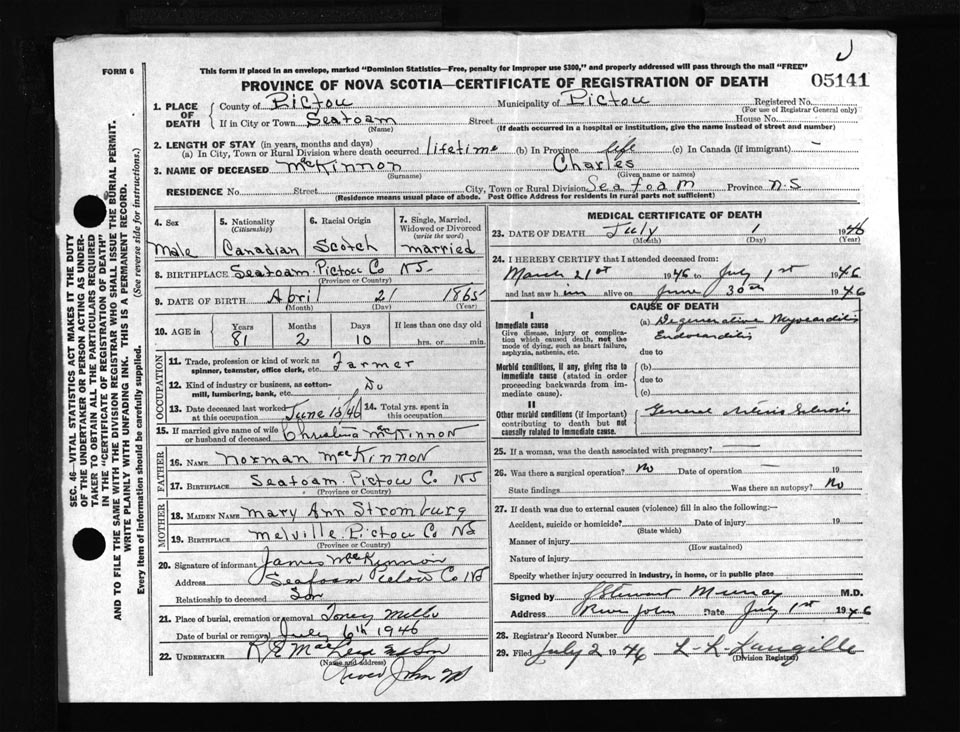 FORM 6
This form if placed in an envelope, marked "Dominion Statistics—Free, penalty for improper use $300," and properly addressed will pass through the mail "FREE"
PROVINCE OF NOVA SCOTIA—CERTIFICATE OF REGISTRATION OF DEATH
05141
1. PLACE OF DEATH { County of Pictou Municipality of Pictou Registered No.
(For use of Registrar General only)
If in City or Town Seafoam Street House No.
(Name) (If death occurred in a hospital or institution, give the name instead of street and number)
2. LENGTH OF STAY (in years, months and days)
(a) In City, Town or Rural Division where death occurred lifetime (b) In Province life (c) In Canada (if immigrant) —
3. NAME OF DECEASED McKinnon Charles
(Surname) (Given name or names)
RESIDENCE No. Street City, Town or Rural Division Seafoam Province N.S
(Residence means usual place of abode. Post Office Address for residents in rural parts not sufficient)
4. Sex Male
5. Nationality (Citizenship) Canadian
6. Racial Origin Scotch
7. Single, Married, Widowed or Divorced (write the word) married
8. BIRTHPLACE Seafoam Pictou Co NS
(Province or Country)
9. DATE OF BIRTH April 21 1865
(Month) (Day) (Year)
10. AGE in Years Months Days If less than one day old
81 2 10 hrs. or min.
OCCUPATION
11. Trade, profession or kind of work as spinner, teamster, office clerk, etc. Farmer
12. Kind of industry or business, as cotton-mill, lumbering, bank, etc. No
13. Date deceased last worked at this occupation June 15/46
14. Total yrs. spent in this occupation
15. If married give name of wife or husband of deceased Christina McKinnon
FATHER
16. NAME Norman MacKinnon
17. BIRTHPLACE Seafoam Pictou Co NS
(Province or Country)
MOTHER
18. MAIDEN NAME Mary Ann Stromburg
19. BIRTHPLACE Melville Pictou Co NS
(Province or Country)
20. Signature of informant James McKinnon
Address Seafoam Co NS
Relationship to deceased Son
21. Place of burial, cremation or removal Toney Mills
Date of burial or removal July 6th 1946
22. UNDERTAKER R E MacLeod & Son
(Name and address)
River John NS
MEDICAL CERTIFICATE OF DEATH
23. DATE OF DEATH July 1 1946
(Month) (Day) (Year)
24. I HEREBY CERTIFY that I attended deceased from:
March 21st 1946 to July 1st 1946
and last saw him alive on June 30th 1946
CAUSE OF DEATH
I
Immediate cause
Give disease, injury or complication which caused death, not the mode of dying, such as heart failure, asphyxia, asthenia, etc.
(a) Degenerative Myocarditis
Endocarditis
due to
Morbid conditions, if any, giving rise to immediate cause (stated in order proceeding backwards from immediate cause).
(b)
due to
(c)
II
Other morbid conditions (if important) contributing to death but not causally related to immediate cause.
General Arterio Sclerosis
25. If a woman, was the death associated with pregnancy?
26. Was there a surgical operation? No Date of operation — 19
State findings Was there an autopsy? No
27. If death was due to external causes (violence) fill in also the following:—
Accident, suicide or homicide? Date of injury 19
(State which)
Manner of injury
(How sustained)
Nature of injury
Specify whether injury occurred in industry, in home, or in public place
Signed by J Stewart Murray M.D.
Address River John Date July 1st 1946
28. Registrar's Record Number
29. Filed July 2 1946 L. L. Langille
(Division Registrar)
SEC. 46—VITAL STATISTICS ACT MAKES IT THE DUTY
OF THE UNDERTAKER OR PERSON ACTING AS UNDER-
TAKER TO OBTAIN ALL THE PARTICULARS REQUIRED
IN THE "CERTIFICATE OF REGISTRATION OF DEATH"
AND TO FILE THE SAME WITH THE DIVISION REGISTRAR WHO SHALL ISSUE THE BURIAL PERMIT.
WRITE PLAINLY WITH UNFADING INK. THIS IS A PERMANENT RECORD.
Every item of information should be carefully supplied. (See reverse side for instructions.)